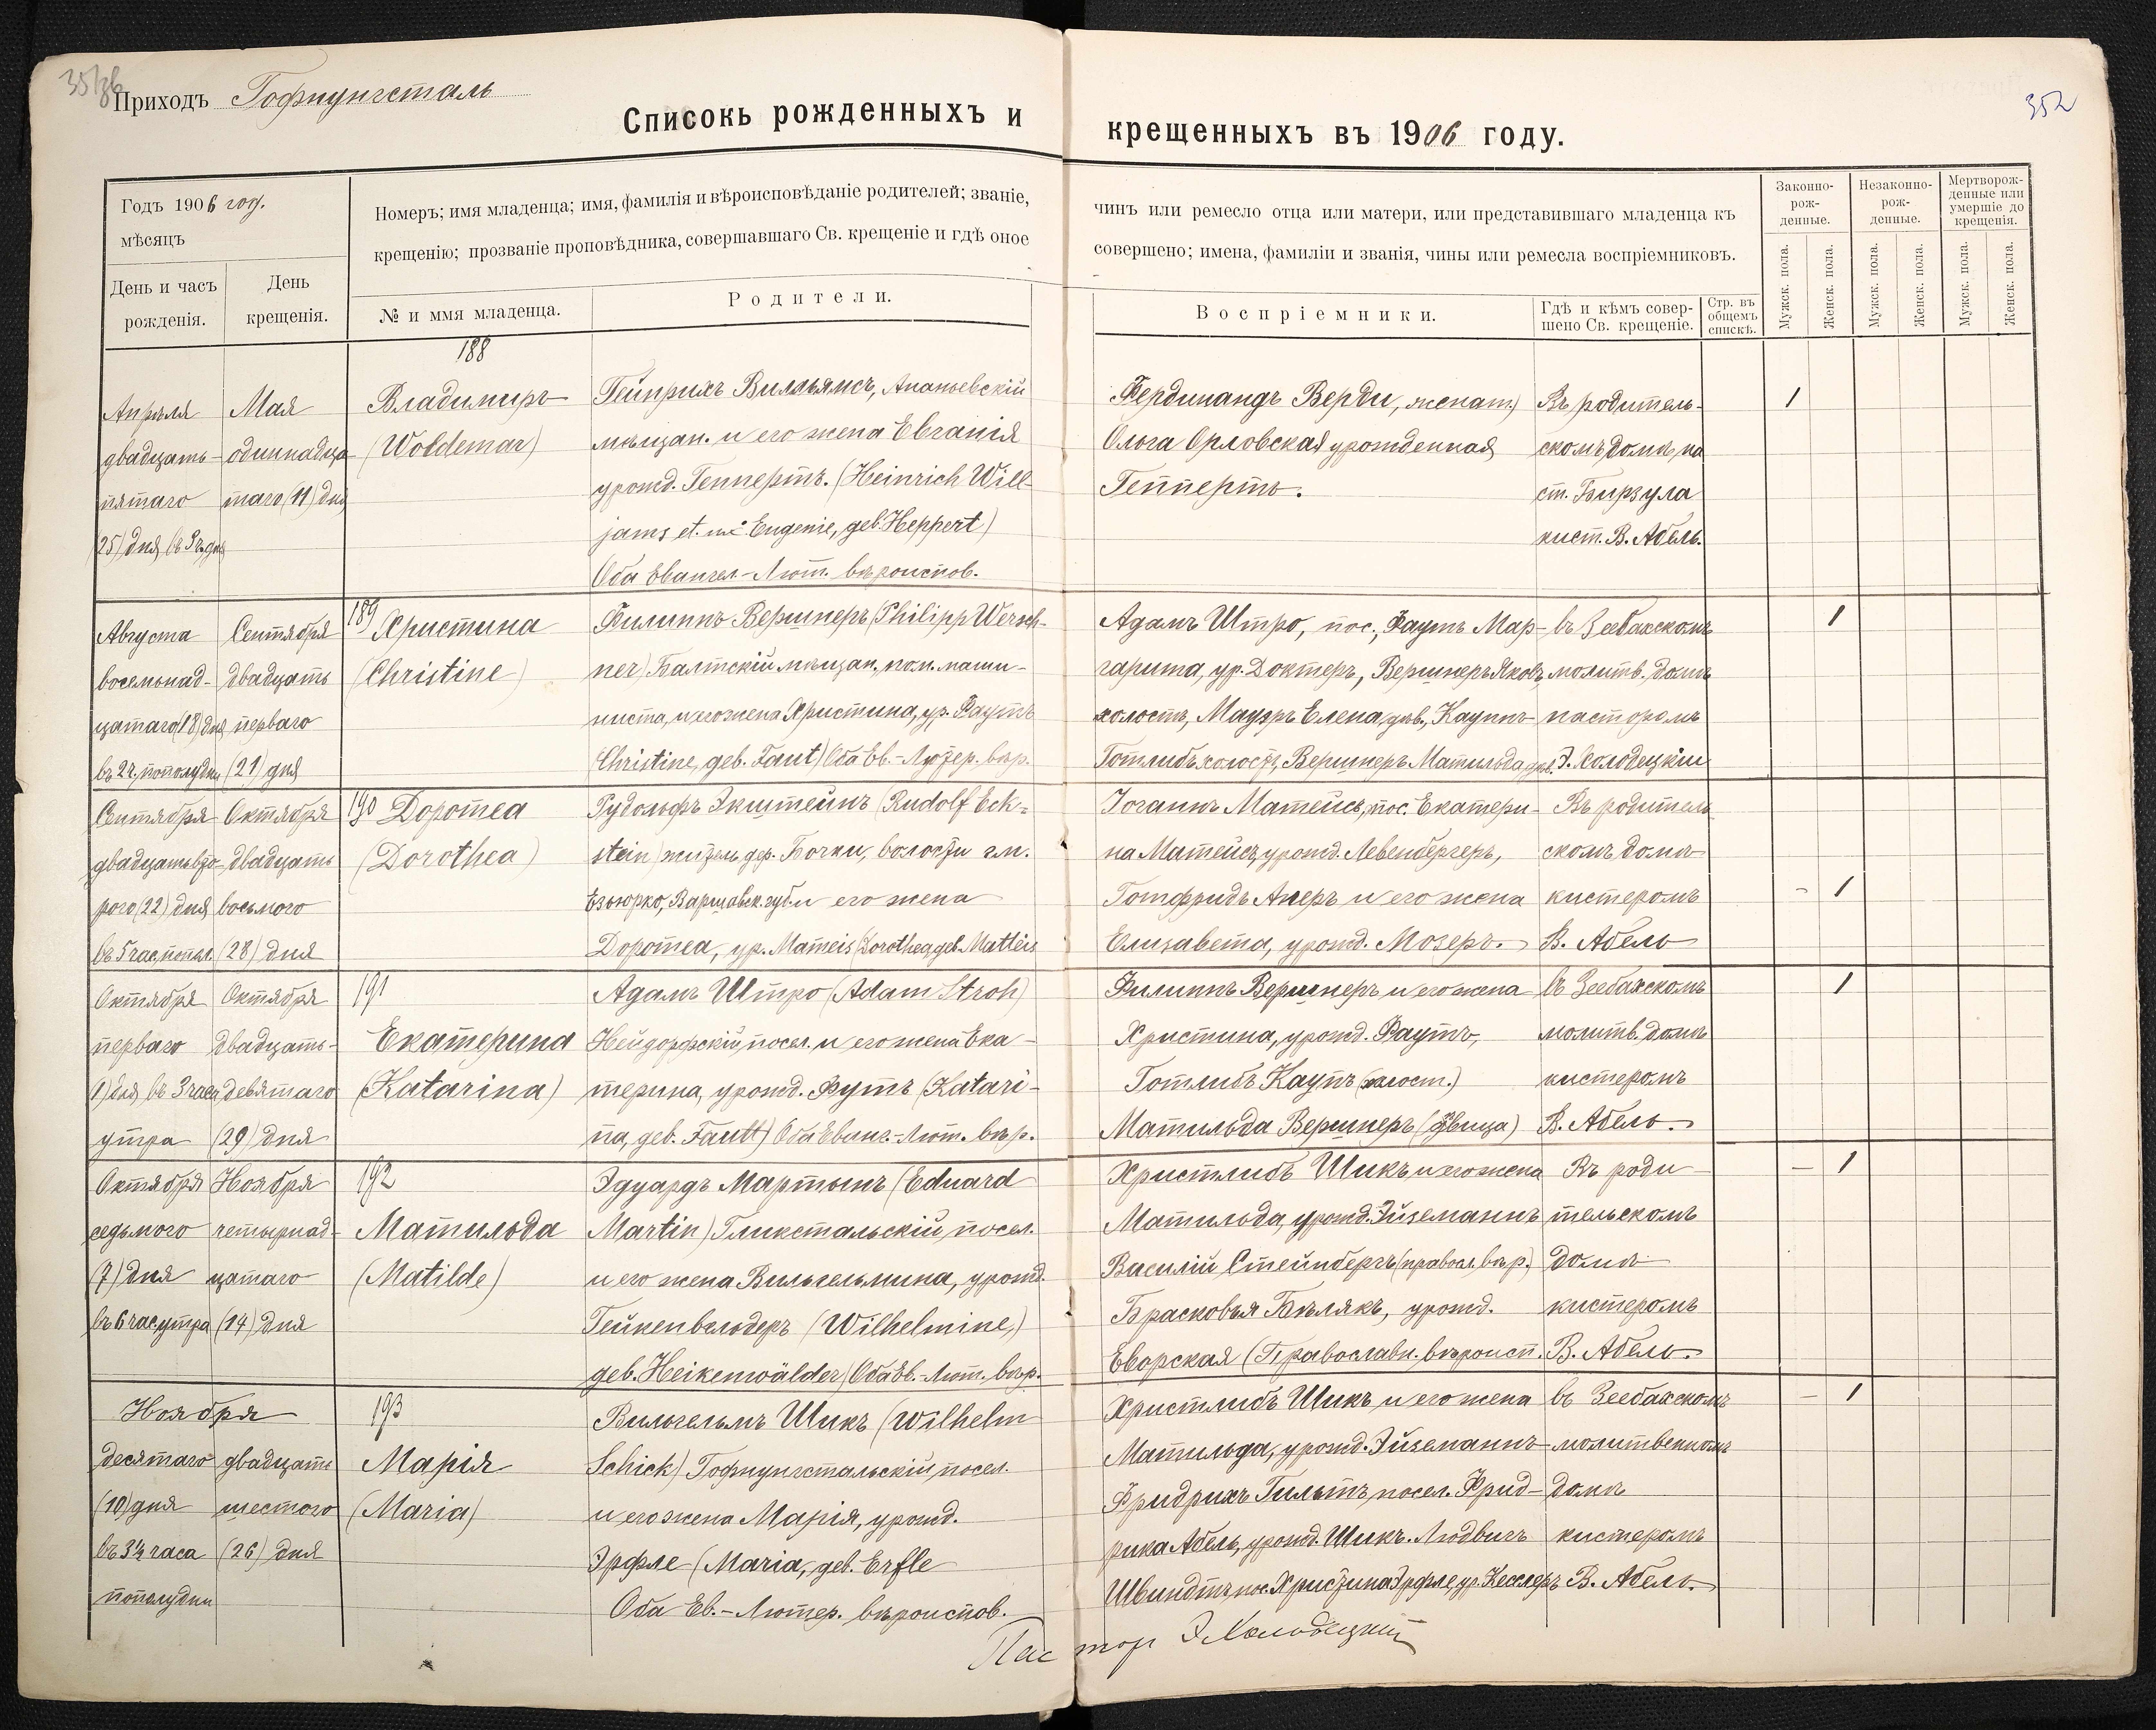 Приходъ Гофнунгсталь
352
Списокъ рожденныхъ и крещенныхъ въ 1906 году.
Годъ 1906 год.
мѣсяцъ
День и часъ рожденія.
День крещенія.
Номеръ; имя младенца; имя, фамилія и вѣроисповѣданіе родителей; званіе, чинъ или ремесло отца или матери, или представившаго младенца къ
крещенію; прозваніе проповѣдника, совершавшаго Св. крещеніе и гдѣ оное совершено; имена, фамиліи и званія, чины или ремесла воспріемниковъ.
№ и ммя младенца.
Родители.
Воспріемники.
Гдѣ и кѣмъ совер-
шено Св. крещеніе.
Стр. въ
общемъ
спискѣ.
Законно-
рож-
денные.
Незаконно-
рож-
денные.
Мертворож-
денные или
умершіе до
крещенія.
Мужск. пола.
Женск. пола.
Мужск. пола.
Женск. пола.
Мужск. пола.
Женск. пола.
Апрѣля
двадцать
пятаго
25) дня
Мая
одиннадца-
таго (11) дня
188
Владимиръ
(Woldemar)
Гейнрихъ Вилльямсъ, Ананьевскій
мѣщан. и его жена Евгенія
урожд. Геппертъ. (Heinrich Will-
jams et. Eugenie, geb. Heppert)
Оба Евангел.-Лют. вѣроиспов.
Фердинандъ Верди, женат.)
Ольга Орловская урожденная
Геппертъ.
Въ родитель-
скомъ домѣ, на
ст. Бирзула
кист. В. Абель.
1
Августа
восемнад-
цатаго (18) дня
въ 2 ч. пополудни
Сентября
двадцать
перваго
(21) дня
189 Христина
(Christine)
Филиппъ Вершнеръ (Philipp Wersch-
ner) Балтскій мѣщан., пом. маши-
ниста, и его жена Христина, ур. Фаутъ
(Christine, geb. Faut) Оба Ев.-Лютер. вѣр.
Адамъ Штро, пос., Фаутъ Мар-
гарита, ур. Доктеръ, Вершнеръ Яковъ,
холостъ, Мауэръ Елена дѣв., Кауппъ
Готлибъ холостъ, Вершнеръ Матильда дѣв.
въ Зеебахскомъ
молитв. домѣ
пасторомъ
Э. Холодецкій
1
Сентября
двадцать вто-
рого (22) дня
въ 5 час. попол.
Октября
двадцать
восьмого
(28) дня
190 Доротеа
(Dorothea)
Рудольфъ Экштейнъ (Rudolf Eck-
stein) житель дер. Бочки, волости гм.
Езьюрко, Варшавск. губ. и его жена
Доротеа, ур. Матеis (Dorothea, geb. Matteis
Іоганнъ Матейсъ, пос. Екатери-
на Матейсъ, урожд. Левенбергеръ,
Готфридъ Анеръ и его жена
Елизавета, урожд. Мозеръ.
Въ родитель-
скомъ домѣ
кистеромъ
В. Абель
- 1
Октября
перваго
1) дня, въ 3 часа
утра
Октября
двадцать-
девятаго
(29) дня
191
Екатерина
(Katarina)
Адамъ Штро (Adam Stroh)
Нейдорфскій посел. и его жена Ека-
терина, урожд. Футъ (Katari-
na, geb. Fautt) Оба Еванг.-Лют. вѣр.
Филиппъ Вершнеръ и его жена
Христина, урожд. Фаутъ,
Готлибъ Каупъ (холост.)
Матильда Вершнеръ (дѣвица)
въ Зеебахскомъ
молитв. домѣ
кистеромъ
В. Абель.
1
Октября
седьмого
(7) дня
въ 6 час. утра
Ноября
четырнад-
цатаго
(14) дня
192
Матильда
(Matilde)
Эдуардъ Мартынъ (Eduard
Martin) Гликстальскій, посел.
и его жена Вильгельмина, урожд.
Гейкенвельдеръ (Wilhelmine,)
geb. Heikenwälder) Оба Ев.-Лют. вѣр.
Христлибъ Шикъ и его жена
Матильда, урожд. Эйземаннъ
Василій Стейнбергъ (правосл. вѣр.)
Брасковья Бѣлякъ, урожд.
Еворская (Православн. вѣроисп.
Въ роди-
тельскомъ
домѣ
кистеромъ
В. Абель.
- 1
Ноября
десятаго
(10) дня
въ 3½ часа
пополудни
двадцать
шестого
(26) дня
193
Марія
(Maria)
Вильгельмъ Шикъ (Wilhelm
Schick) Гофнунгстальскій, посел.
и его жена Марія, урожд.
Эрфле (Maria, geb. Erfle
Оба Ев.-Лютер. вѣроиспов.
Христлибъ Шикъ и его жена
Матильда, урожд. Эйземаннъ
Фридрихъ Гильтъ, посел. Фрид-
рика Абель, урожд. Шикъ. Людвигъ
Швиндтъ, пос. Христина Эрфле ур. Кесслеръ
въ Зеебахскомъ
молитвенномъ
домѣ
кистеромъ
В. Абель.
- 1
Пастор Э. Холодецкій